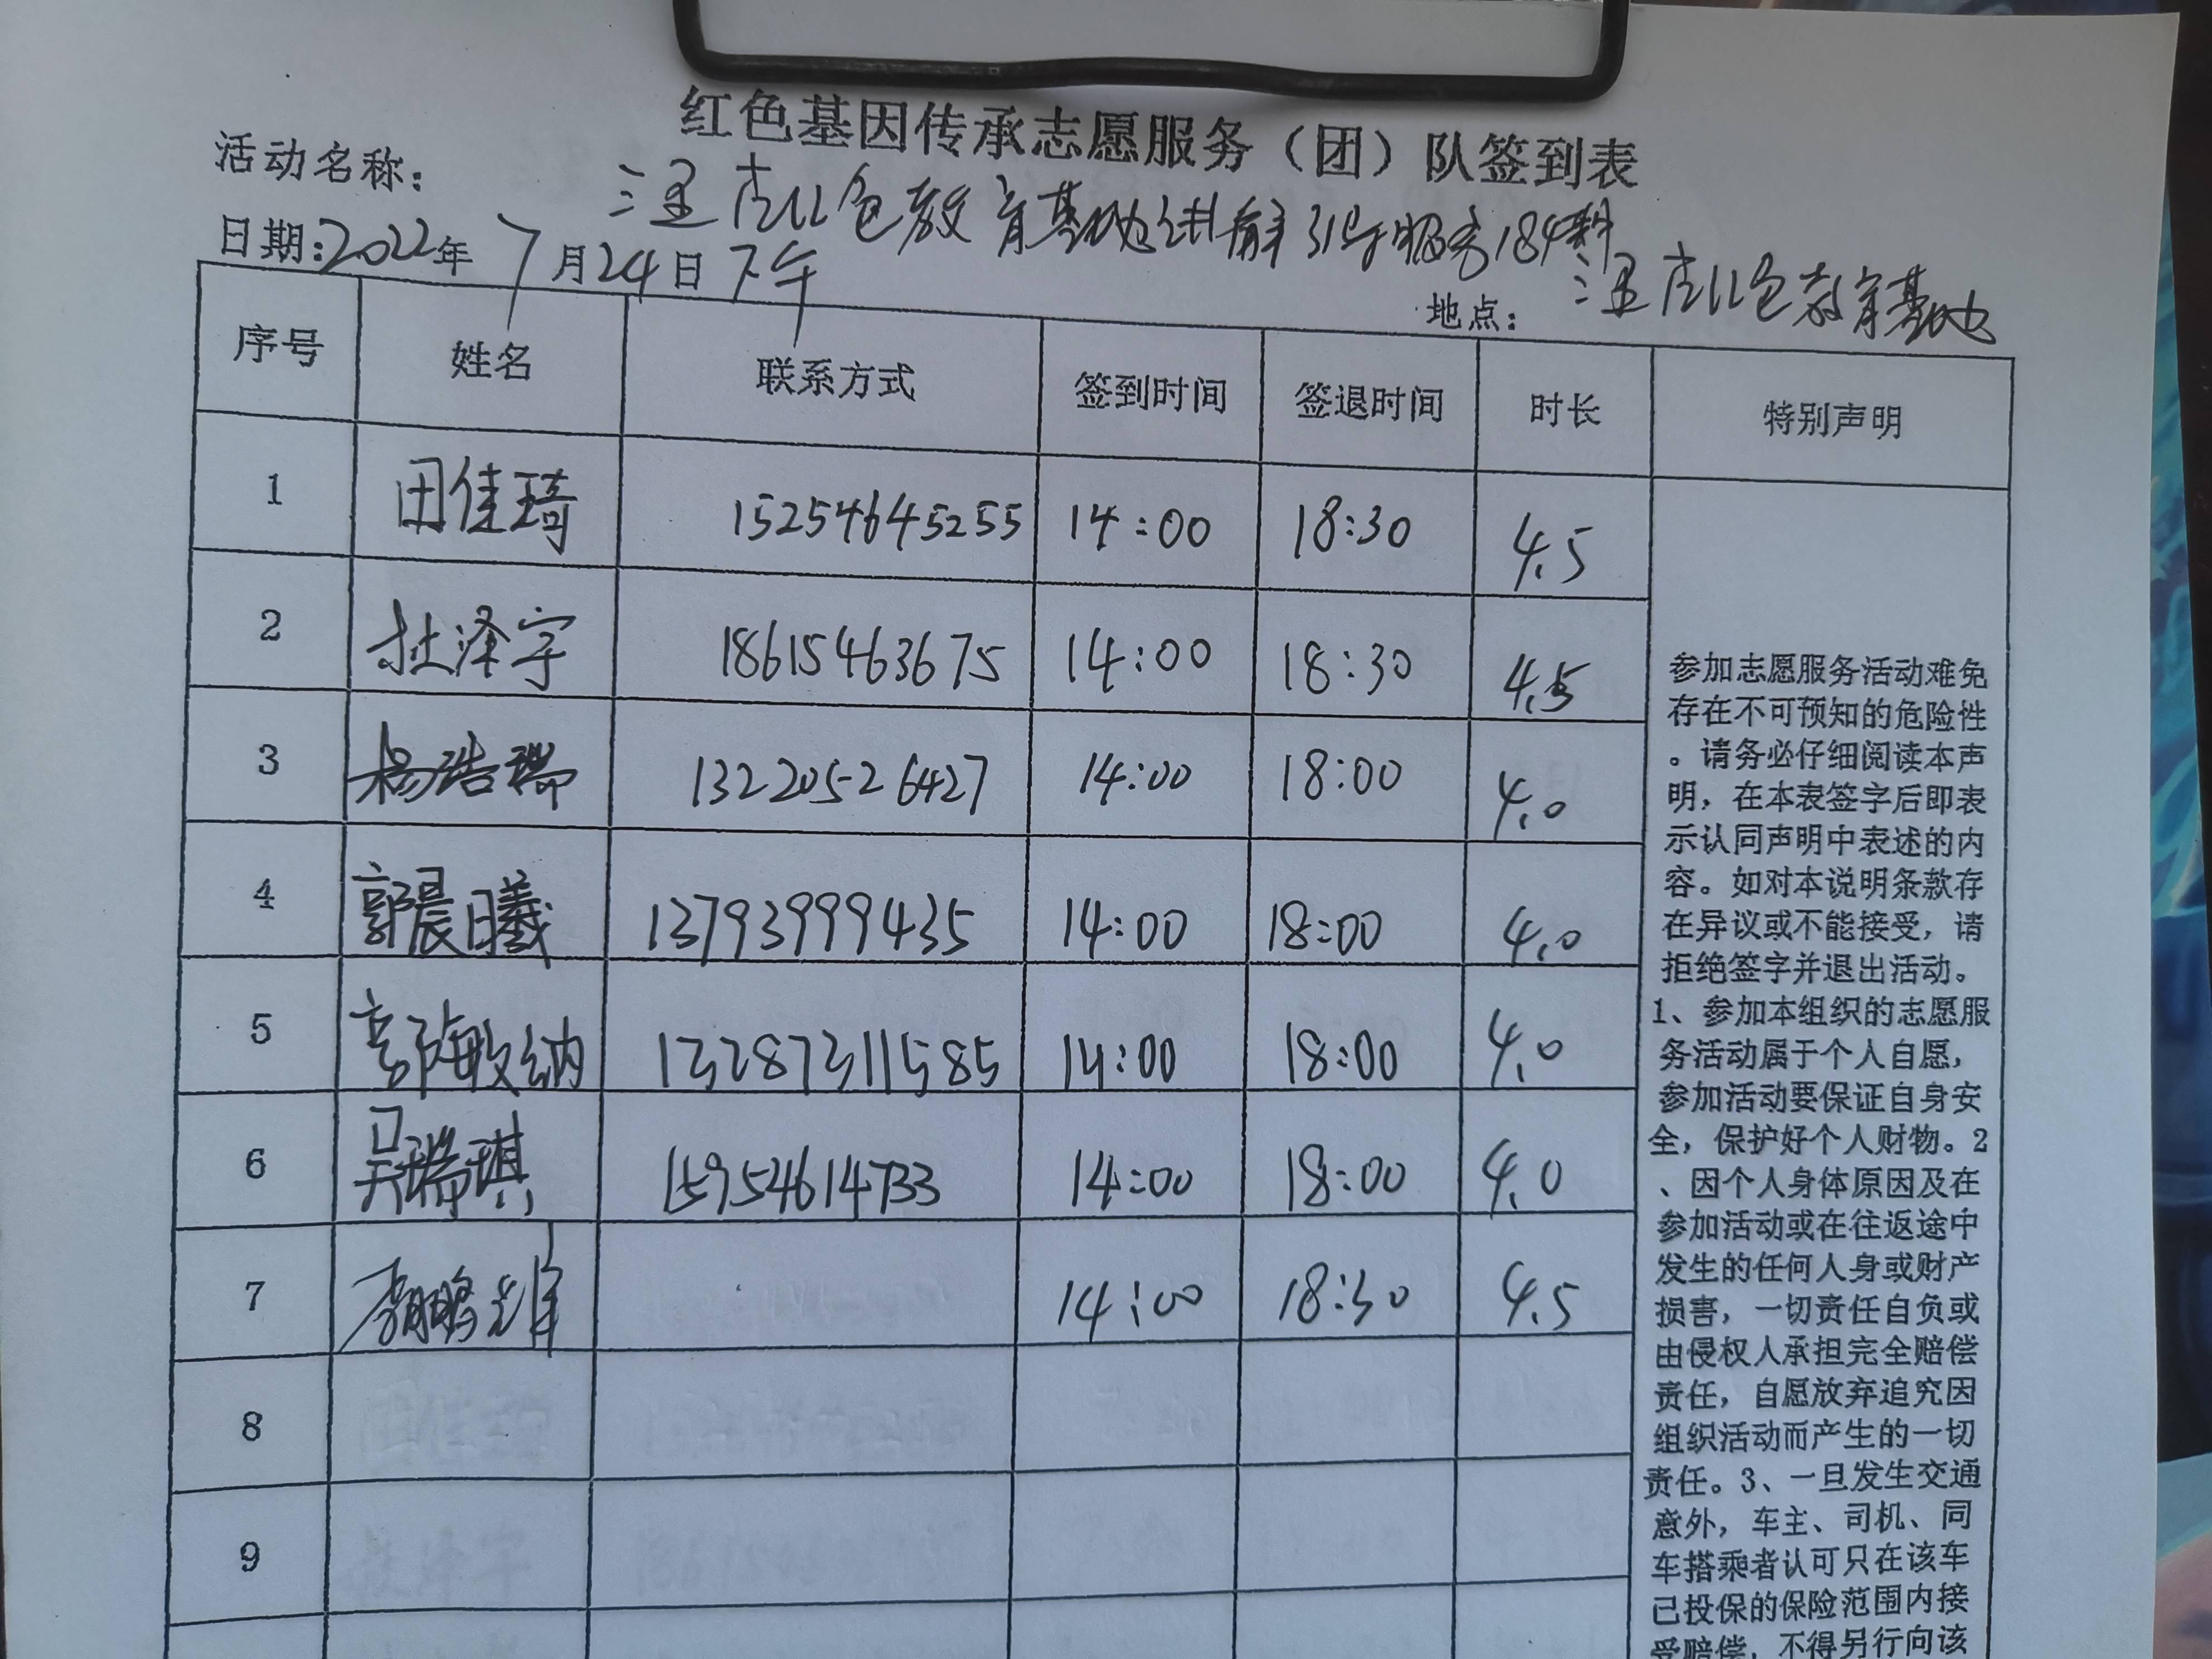 红色基因传承志愿服务（团）队签到表
活动名称：
三里庄红色教育基地讲解引导服务184期
日期:2022年7月24日下午
地点：三里庄红色教育基地
序号 姓名 联系方式 签到时间 签退时间 时长 特别声明
1 田佳琦 15254645255 14:00 18:30 4.5
2 杜泽宇 18615463675 14:00 18:30 4.5
3 杨浩瑞 13220526427 14:00 18:00 4.0
4 郭晨曦 13793999435 14:00 18:00 4.0
5 13287311585 14:00 18:00 4.0
6 吴瑞琪 15954614733 14:00 18:00 4.0
7 14:00 18:30 4.5
8
9
参加志愿服务活动难免
存在不可预知的危险性
。请务必仔细阅读本声
明，在本表签字后即表
示认同声明中表述的内
容。如对本说明条款存
在异议或不能接受，请
拒绝签字并退出活动。
1、参加本组织的志愿服
务活动属于个人自愿，
参加活动要保证自身安
全，保护好个人财物。2
、因个人身体原因及在
参加活动或在往返途中
发生的任何人身或财产
损害，一切责任自负或
由侵权人承担完全赔偿
责任，自愿放弃追究因
组织活动而产生的一切
责任。3、一旦发生交通
意外，车主、司机、同
车搭乘者认可只在该车
已投保的保险范围内接
受赔偿，不得另行向该